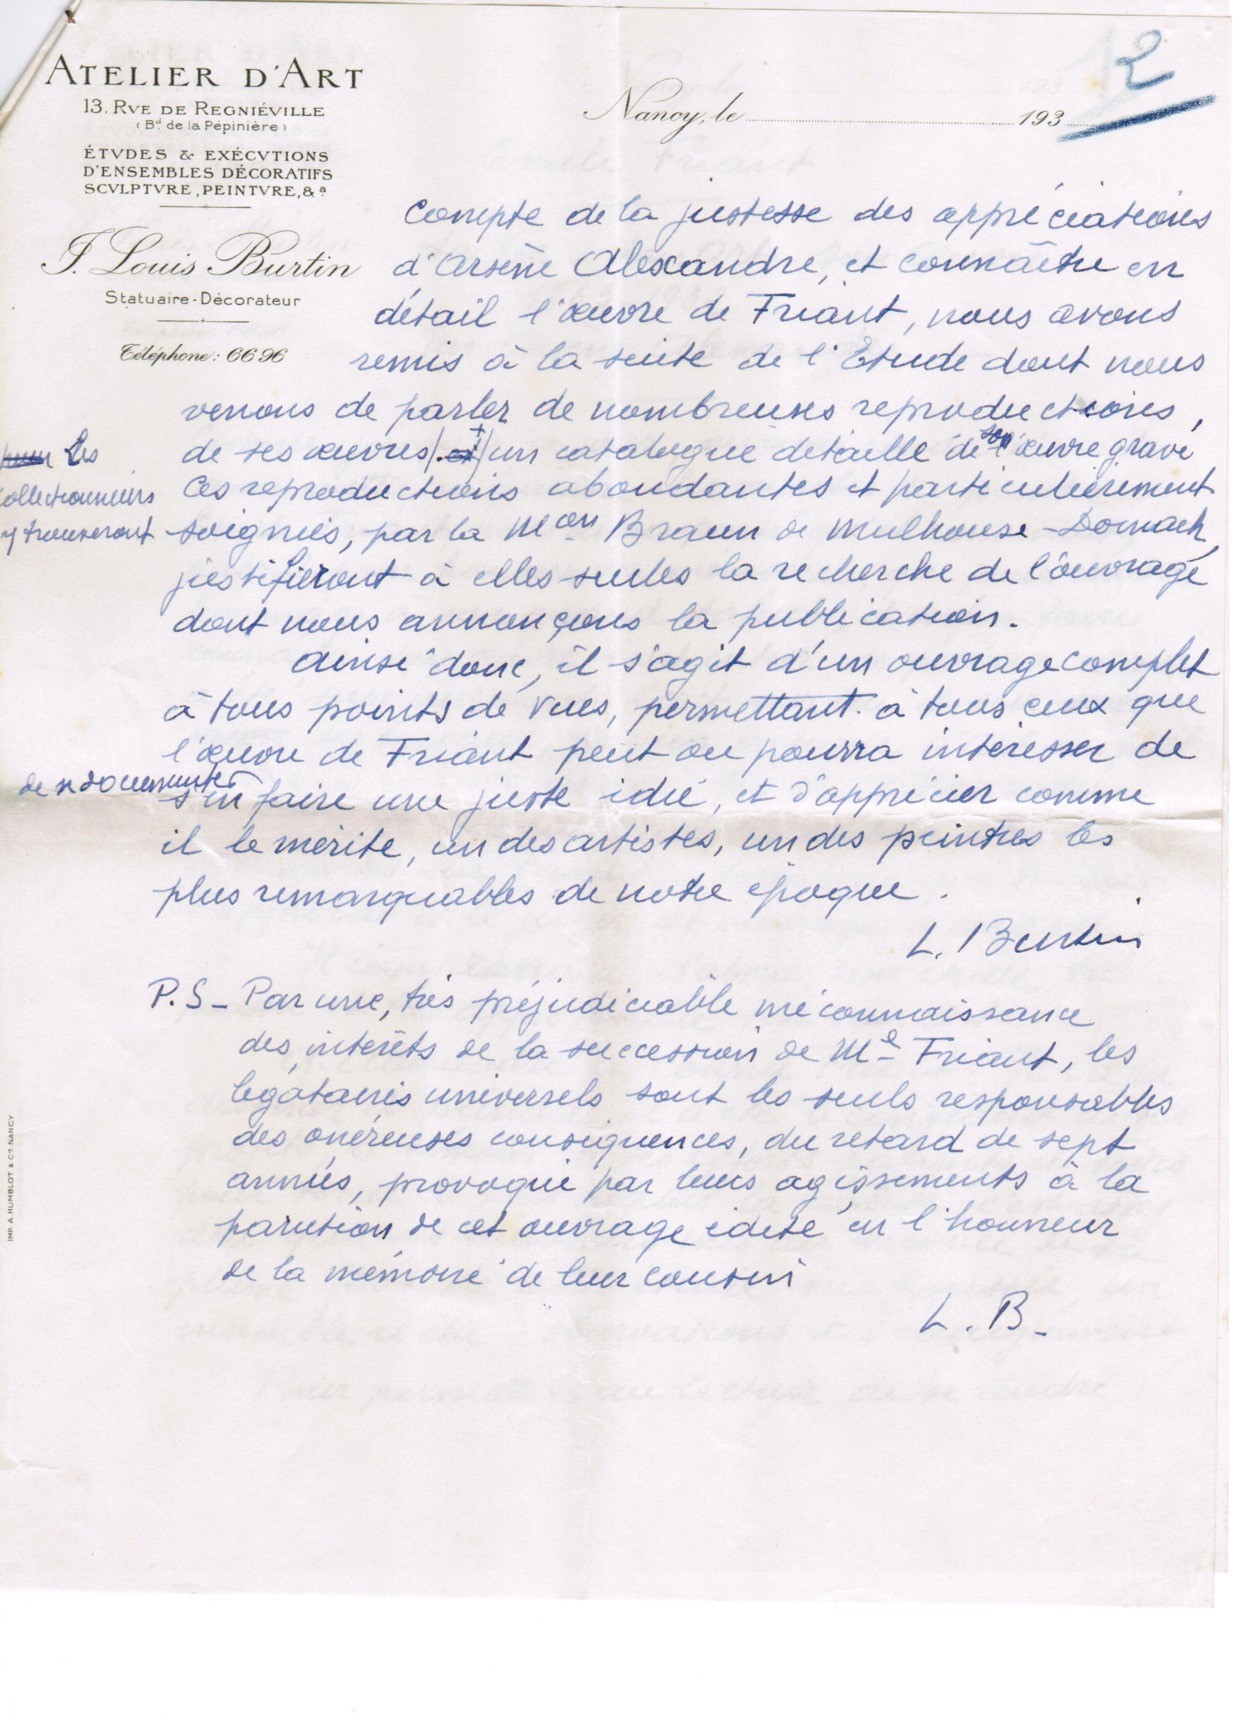 ATELIER D'ART
13, RVE DE REGNIÉVILLE
(Bd de la Pépinière)
ÉTVDES & EXÉCVTIONS
D'ENSEMBLES DÉCORATIFS
SCVLPTVRE, PEINTVRE, &a
J. Louis Burtin
Statuaire-Décorateur
Téléphone: 66 96
Nancy, le 193
12
compte de la justesse des appréciations
d'Arsène Alexandre, et connaître en
détail l'œuvre de Friant, nous avons
remis à la suite de l'Etude dont nous
venons de parler de nombreuses reproductions,
de ses œuvres/. et +/ un catalogue détaillé de son œuvre gravé
Les
collectionneurs
y trouveront
Ces reproductions abondantes et particulièrement
soignées, par la Mon Braun de Mulhouse-Dornach,
justifieront à elles seules la recherche de l'ouvrage
dont nous annonçons la publication.
Ainsi donc, il s'agit d'un ouvrage complet
à tous points de vues, permettant à tous ceux que
l'œuvre de Friant peut ou pourra intéresser de
de se documenter
s'en faire une juste idée, et d'apprécier comme
il le mérite, un des artistes, un des peintres les
plus remarquables de notre époque.
L. Burtin
P.S- Par une, très préjudiciable méconnaissance
des intérêts de la succession de Me Friant, les
légataires universels sont les seuls responsables
des onéreuses conséquences, du retard de sept
années, provoqué par leurs agissements à la
parution de cet ouvrage édité en l'honneur
de la mémoire de leur cousin
L. B-
IMP. A. HUMBLOT & Cie NANCY